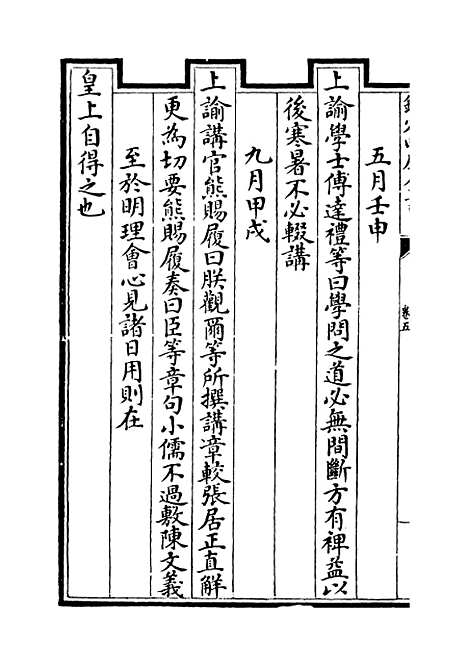 五月壬申
上諭學士傅達禮等曰學問之道必無間斷方有裨益以
後寒暑不必輟講
九月甲戌
上諭講官熊賜履曰朕觀爾等所撰講章較張居正直解
更為切要熊賜履奏曰臣等章句小儒不過敷陳文義
至於明理會心見諸日用則在
皇上自得之也
卷五